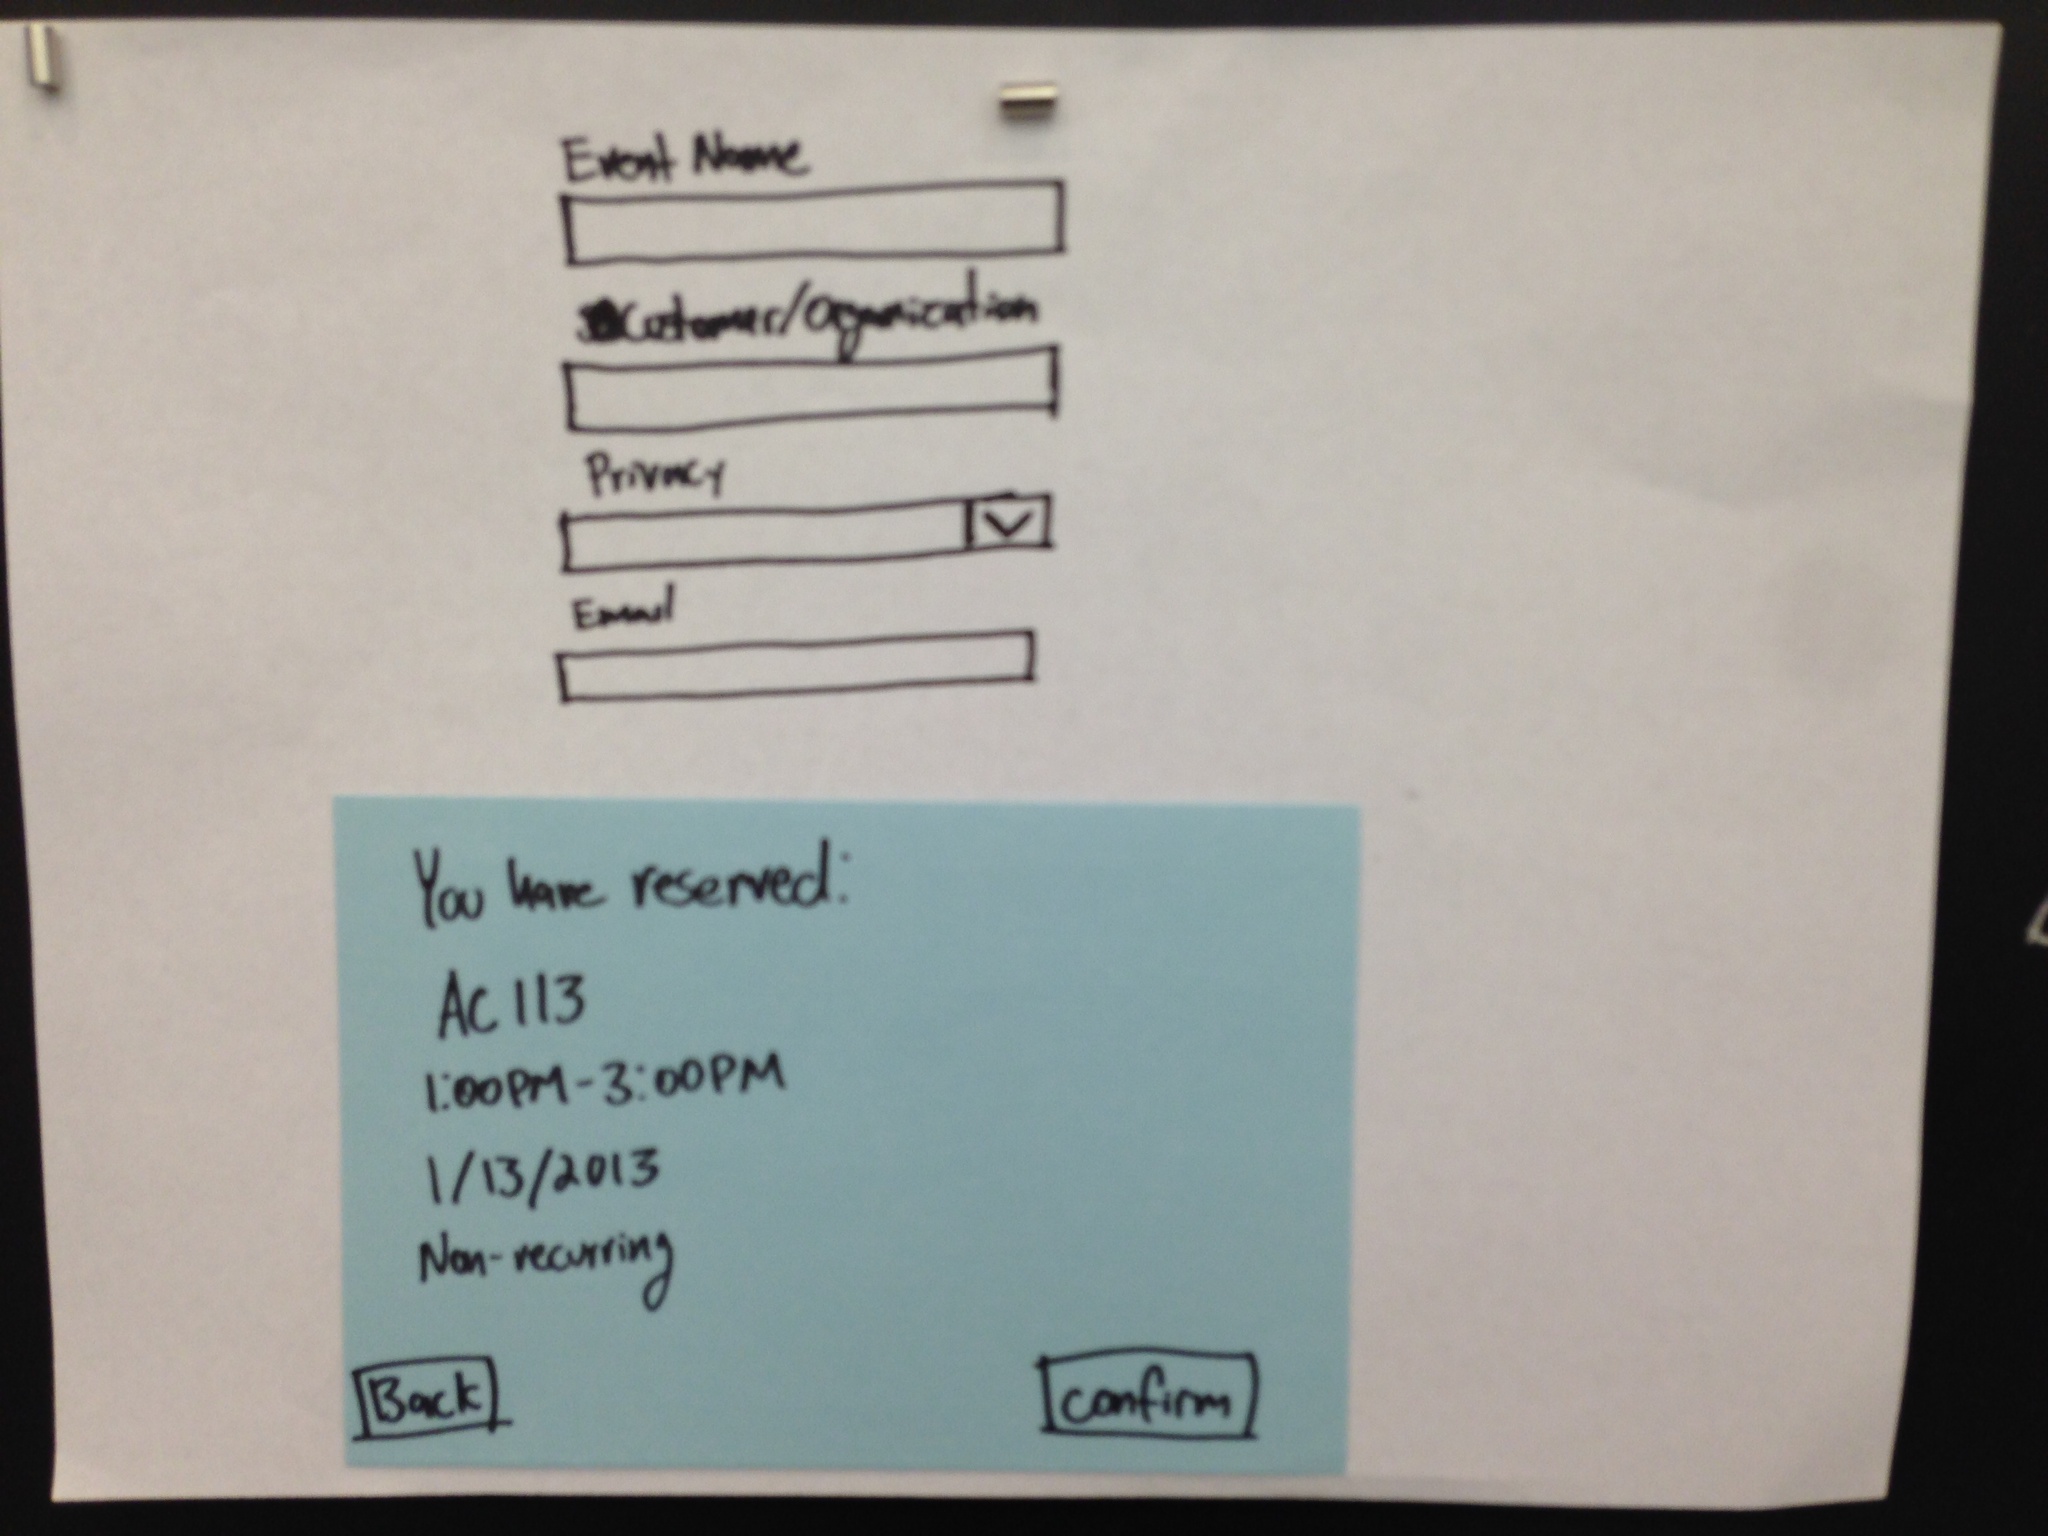 Event Name
Customer/Oganization
Privacy
Email
You have reserved:
AC 113
1:00PM-3:00PM
1/13/2013
Non-recurring
Back
Confirm